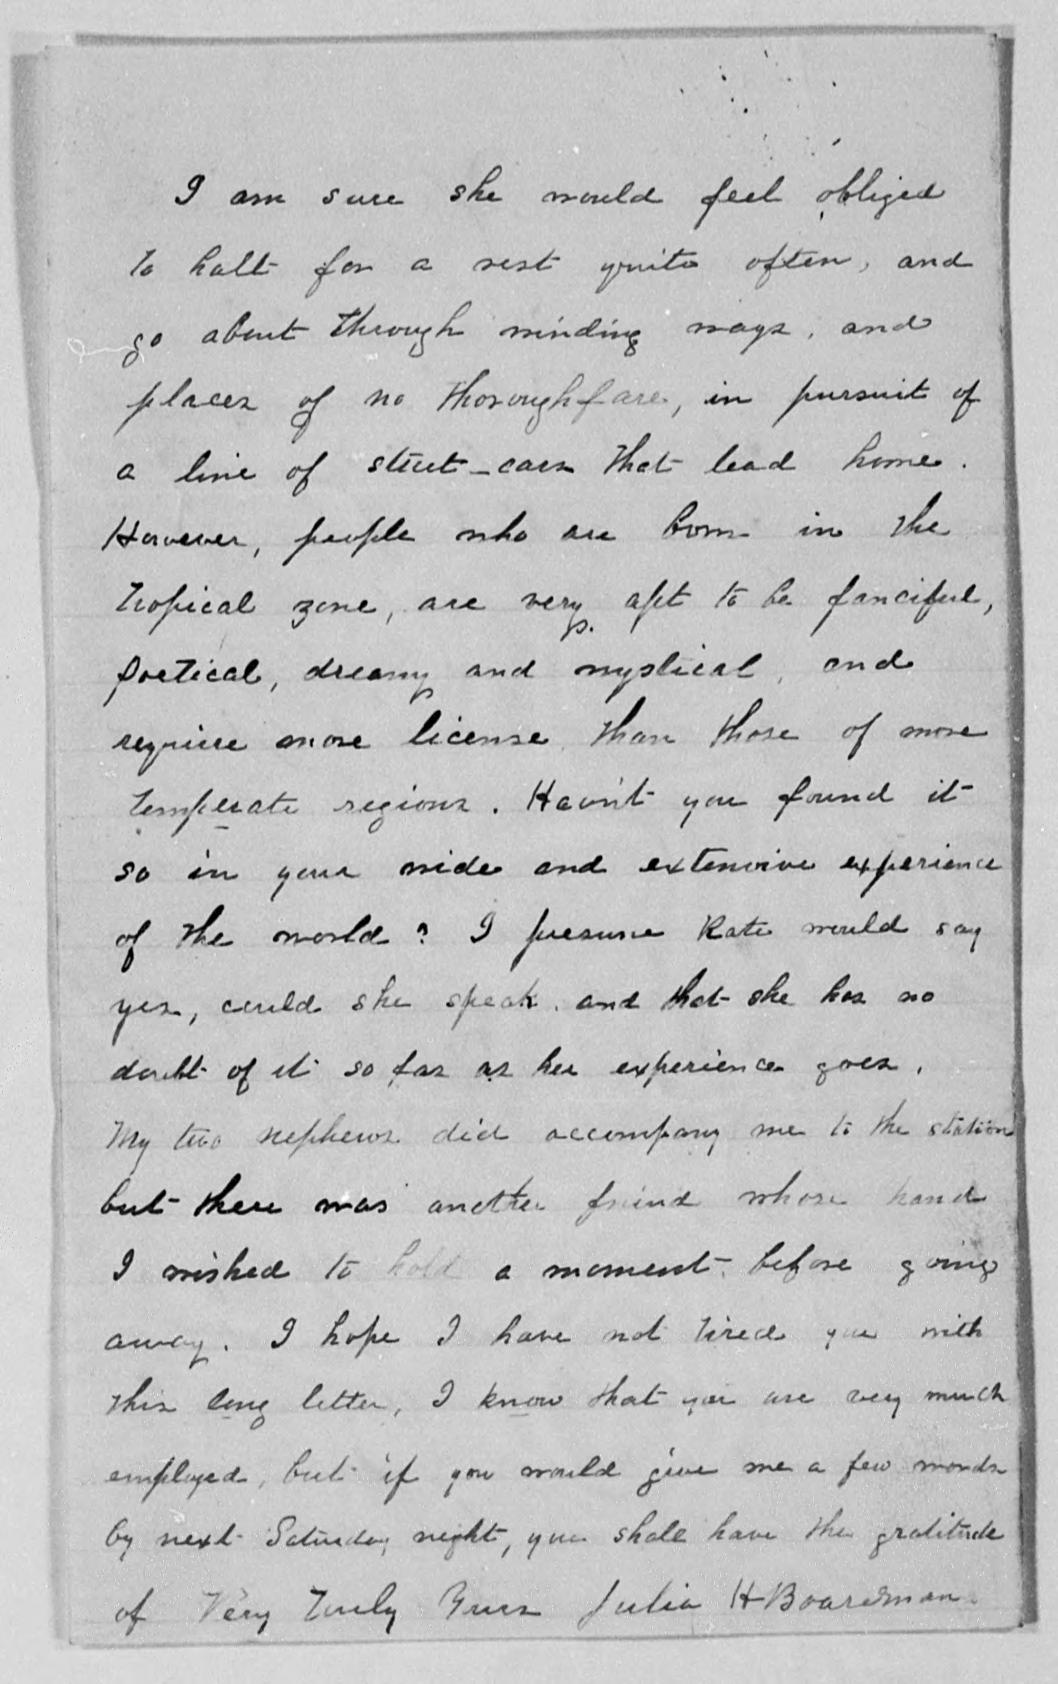 I am sure she would feel obliged
to halt for a rest quite often, and
go about through winding ways, and
places of no thoroughfare, in pursuit of
a line of street-cars that lead home.
However, people who are born in the
tropical zone, are very apt to be fanciful,
poetical, dreamy and mystical, and
require more license than those of more
temperate regions. Havn't you found it
so in your wide and extensive experience
of the world? I presume Kate would say
yes, could she speak, and that she has no
doubt of it so far as her experience goes.
My two nephews did accompany me to the station
but there was another friend whose hand
I wished to hold a moment before going
away. I hope I have not tired you with
this long letter, I know that you are very much
employed, but if you would give me a few words
by next Saturday night, you shall have the gratitude
of Very Truly Yours Julia H Boardman